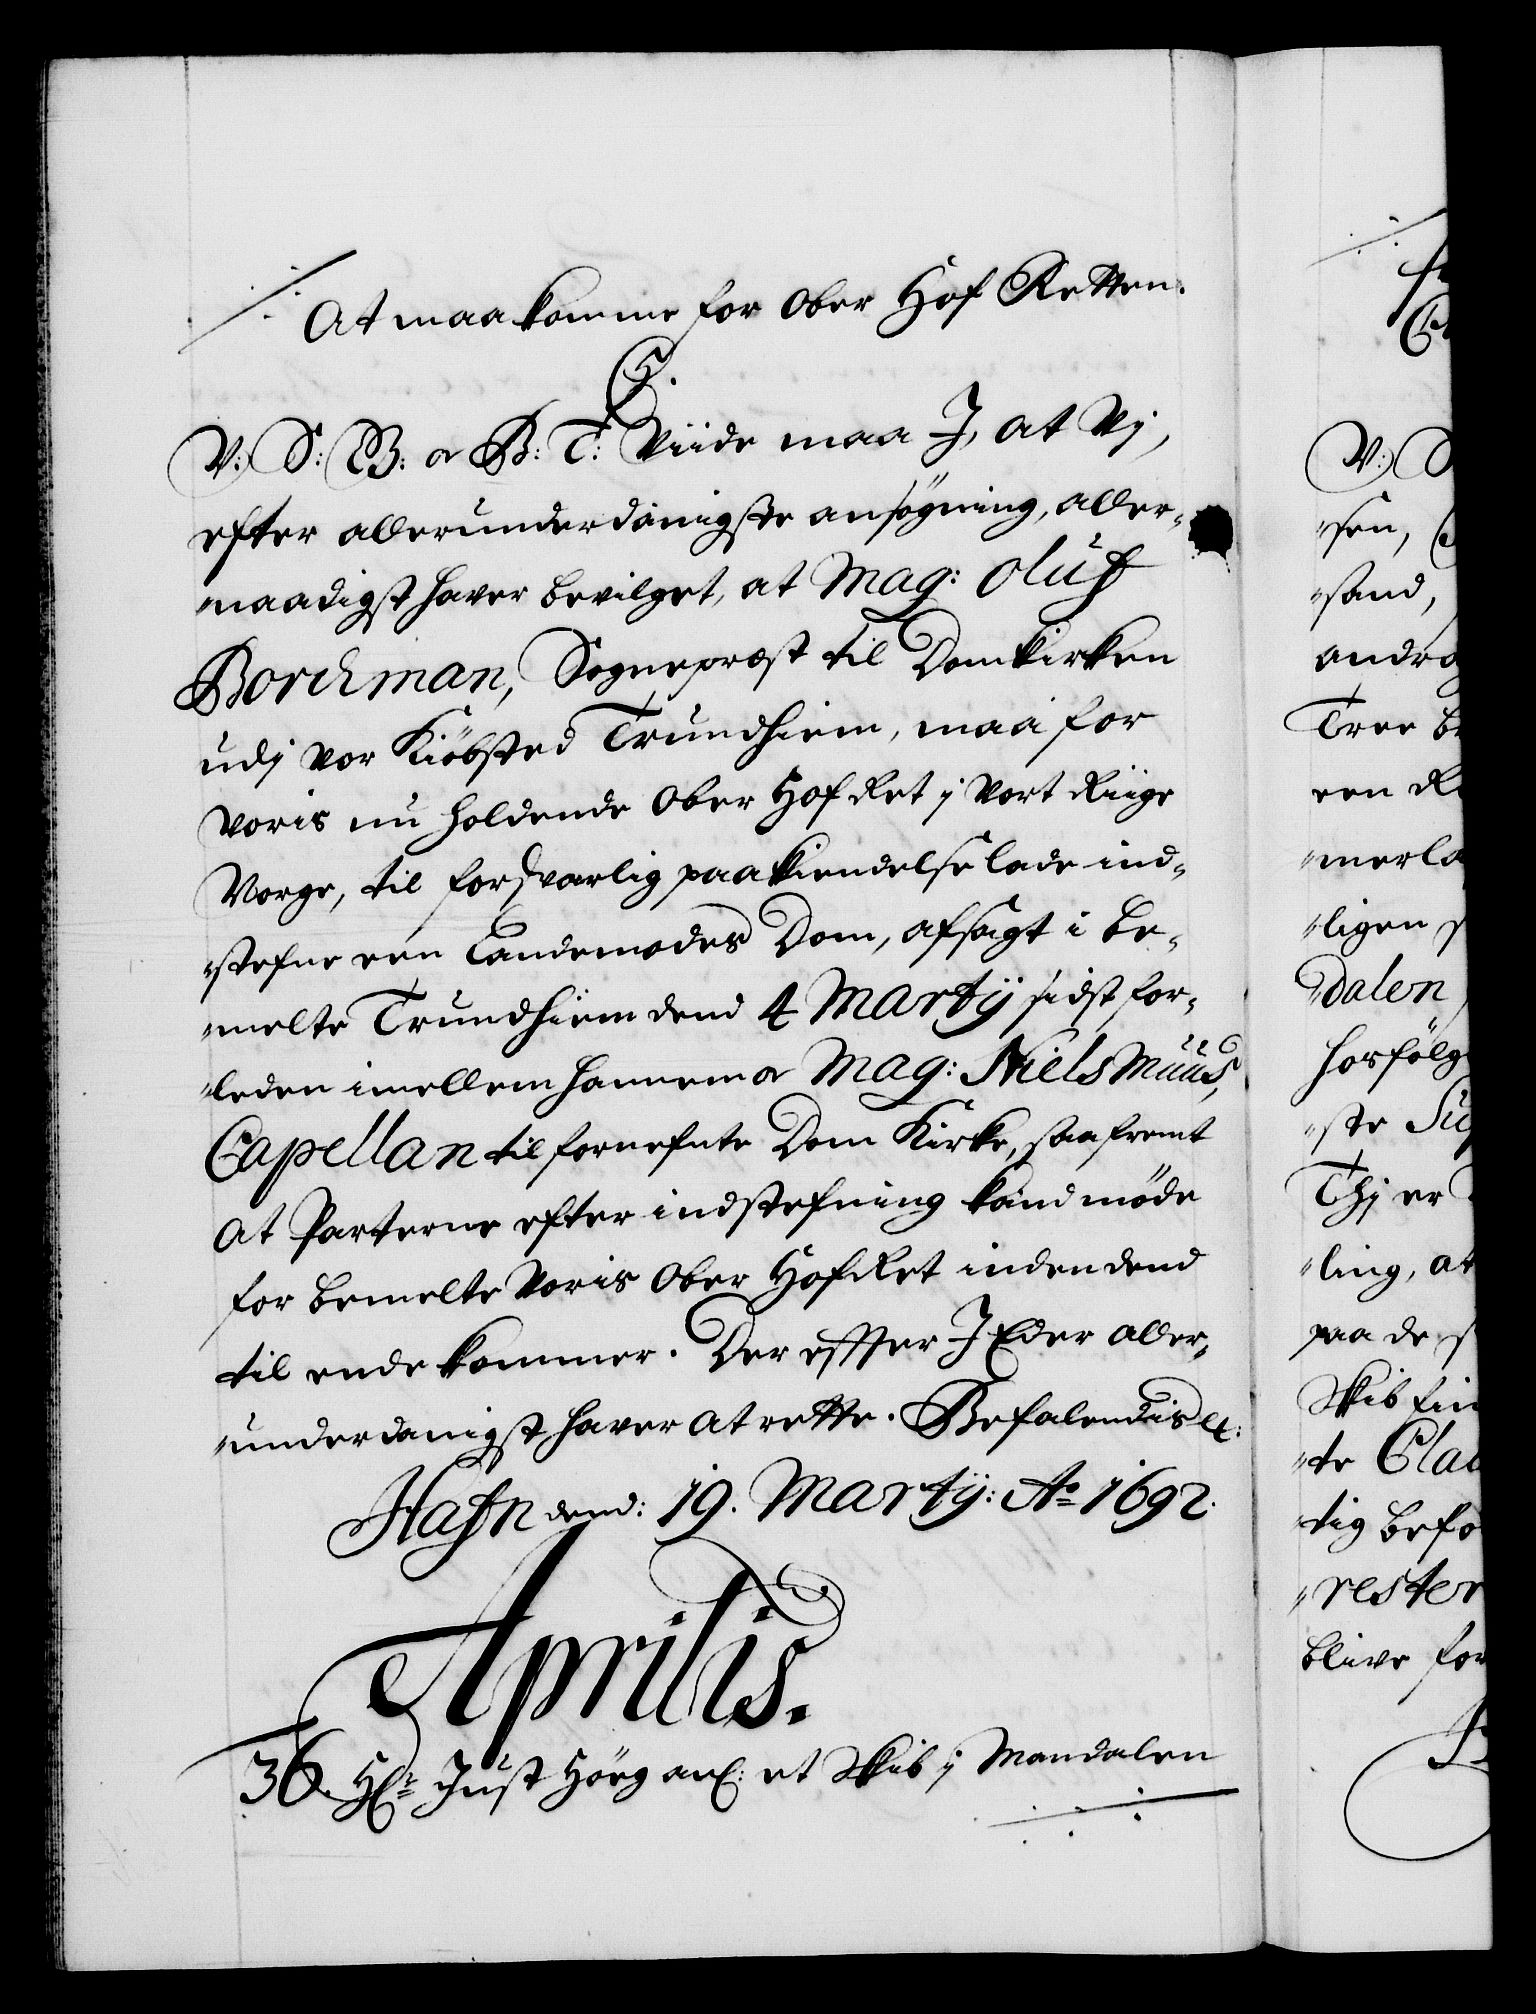 At maa komme for Ober Hof Retten.
C 5.
V: S: G B: or B: T: Viide maa J, at Vj,
efter allerunderdanigste ansøgning, aller-
naadigst haver bevilget, at Mag: Oluf
Borchman, Sognepræst til Domkirken
udj vor Kiøbsted Trundhiem, maa for
voris nu holdende Ober Hof Ret j vort Riige
Norge, til forsvarlig paakiendelse lade ind-
stefne een Landemodes Dom, afsagt i be-
melte Trundhiem dend 4 Martij sidst for-
leden imellem hannem or Mag: Niels Muus,
Capellan til fornefnte Dom Kirke, saafremt
at Parterne efter indstefning kand møde
for bemelte Voris Ober Hof Ret inden dend
til ende kommer. Der efter J Eder aller-
underdanigst haver at rette. Befalendis etc:
Hafn dend: 19. Martij: Ao 1692.
Aprilis.
36. Hr: Just Høeg anl: et Skib j Mandalen
V: S
sen,
sand,
andrag
Tree b
een R
merla
ligen s
dalen
horfølg
ste Su
Thj er
ling, at
paa de s
Skib fin
te Clau
tig befo
rester
blive for